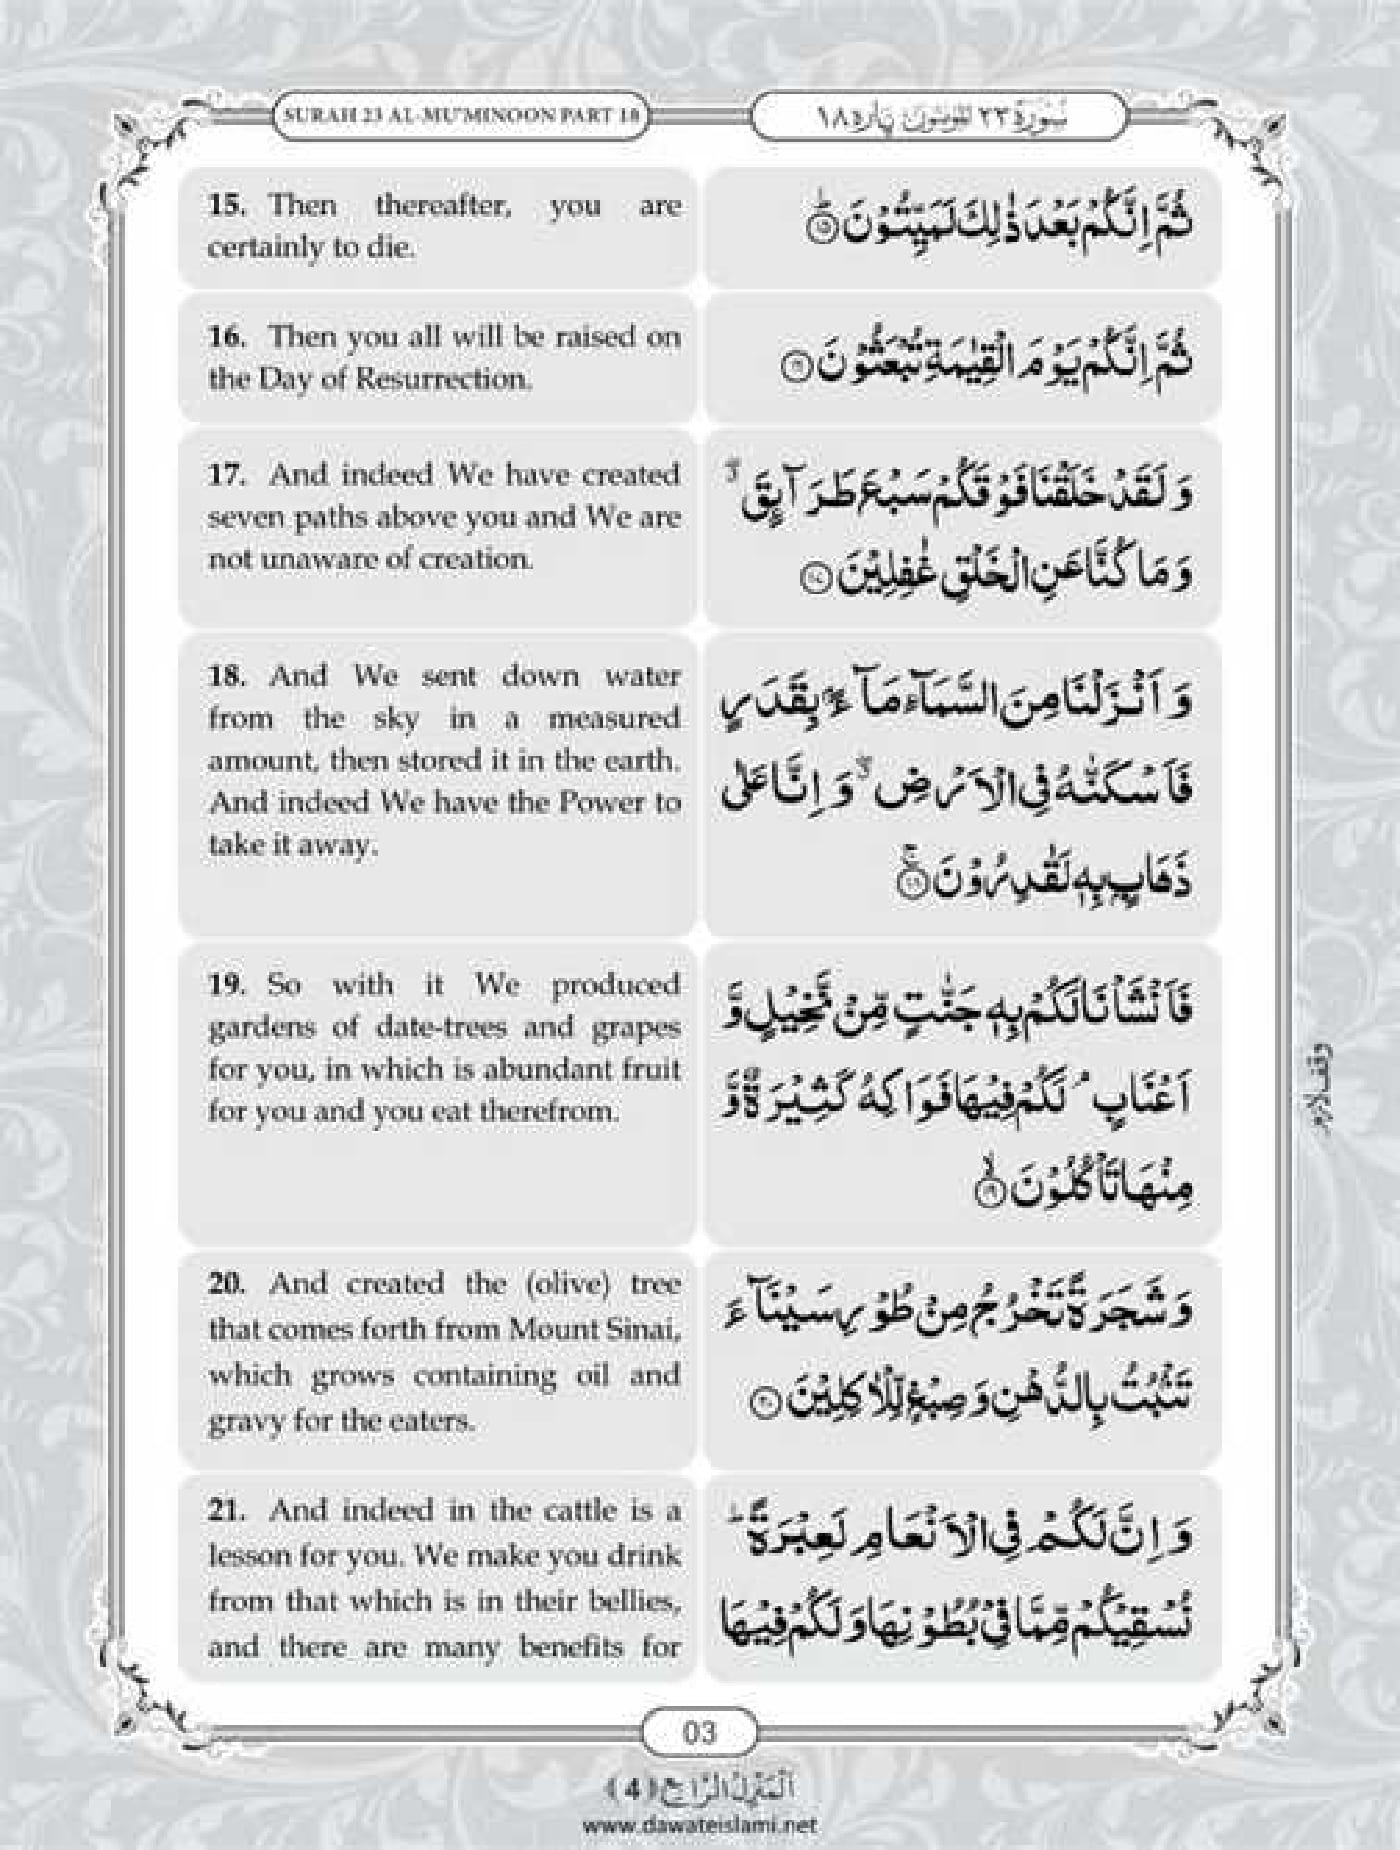 SURAH 23 AL-MU'MINOON PART 18
سُوْرَةُ ٢٣ الْمُؤْمِنُوْن پاره ١٨
15. Then thereafter, you are
certainly to die.
ثُمَّ اِنَّكُمْ بَعْدَ ذٰلِكَ لَمَیِّتُوْنَ ؕ﴿۱۵﴾
16. Then you all will be raised on
the Day of Resurrection.
ثُمَّ اِنَّكُمْ یَوْمَ الْقِیٰمَةِ تُبْعَثُوْنَ ﴿۱۶﴾
17. And indeed We have created
seven paths above you and We are
not unaware of creation.
وَ لَقَدْ خَلَقْنَا فَوْقَكُمْ سَبْعَ طَرَآىِٕقَ ۖۗ
وَ مَا كُنَّا عَنِ الْخَلْقِ غٰفِلِیْنَ ﴿۱۷﴾
18. And We sent down water
from the sky in a measured
amount, then stored it in the earth.
And indeed We have the Power to
take it away.
وَ اَنْزَلْنَا مِنَ السَّمَآءِ مَآءًۢ بِقَدَرٍ
فَاَسْكَنّٰهُ فِی الْاَرْضِ ۖۗ وَ اِنَّا عَلٰى
ذَهَابٍۭ بِهٖ لَقٰدِرُوْنَ ۚ﴿۱۸﴾
19. So with it We produced
gardens of date-trees and grapes
for you, in which is abundant fruit
for you and you eat therefrom.
فَاَنْشَاْنَا لَكُمْ بِهٖ جَنّٰتٍ مِّنْ نَّخِیْلٍ وَّ
اَعْنَابٍ ۘ لَكُمْ فِیْهَا فَوَاكِهُ كَثِیْرَةٌ وَّ
مِنْهَا تَاْكُلُوْنَ ۙ﴿۱۹﴾
وقف لازم
20. And created the (olive) tree
that comes forth from Mount Sinai,
which grows containing oil and
gravy for the eaters.
وَ شَجَرَةً تَخْرُجُ مِنْ طُوْرِ سَیْنَآءَ
تَنْۢبُتُ بِالدُّهْنِ وَ صِبْغٍ لِّلْاٰكِلِیْنَ ﴿۲۰﴾
21. And indeed in the cattle is a
lesson for you. We make you drink
from that which is in their bellies,
and there are many benefits for
وَ اِنَّ لَكُمْ فِی الْاَنْعَامِ لَعِبْرَةً ؕ
نُسْقِیْكُمْ مِّمَّا فِیْ بُطُوْنِهَا وَ لَكُمْ فِیْهَا
03
اَلْمَنْزِلُ الرَّابِع ﴿4﴾
www.dawateislami.net